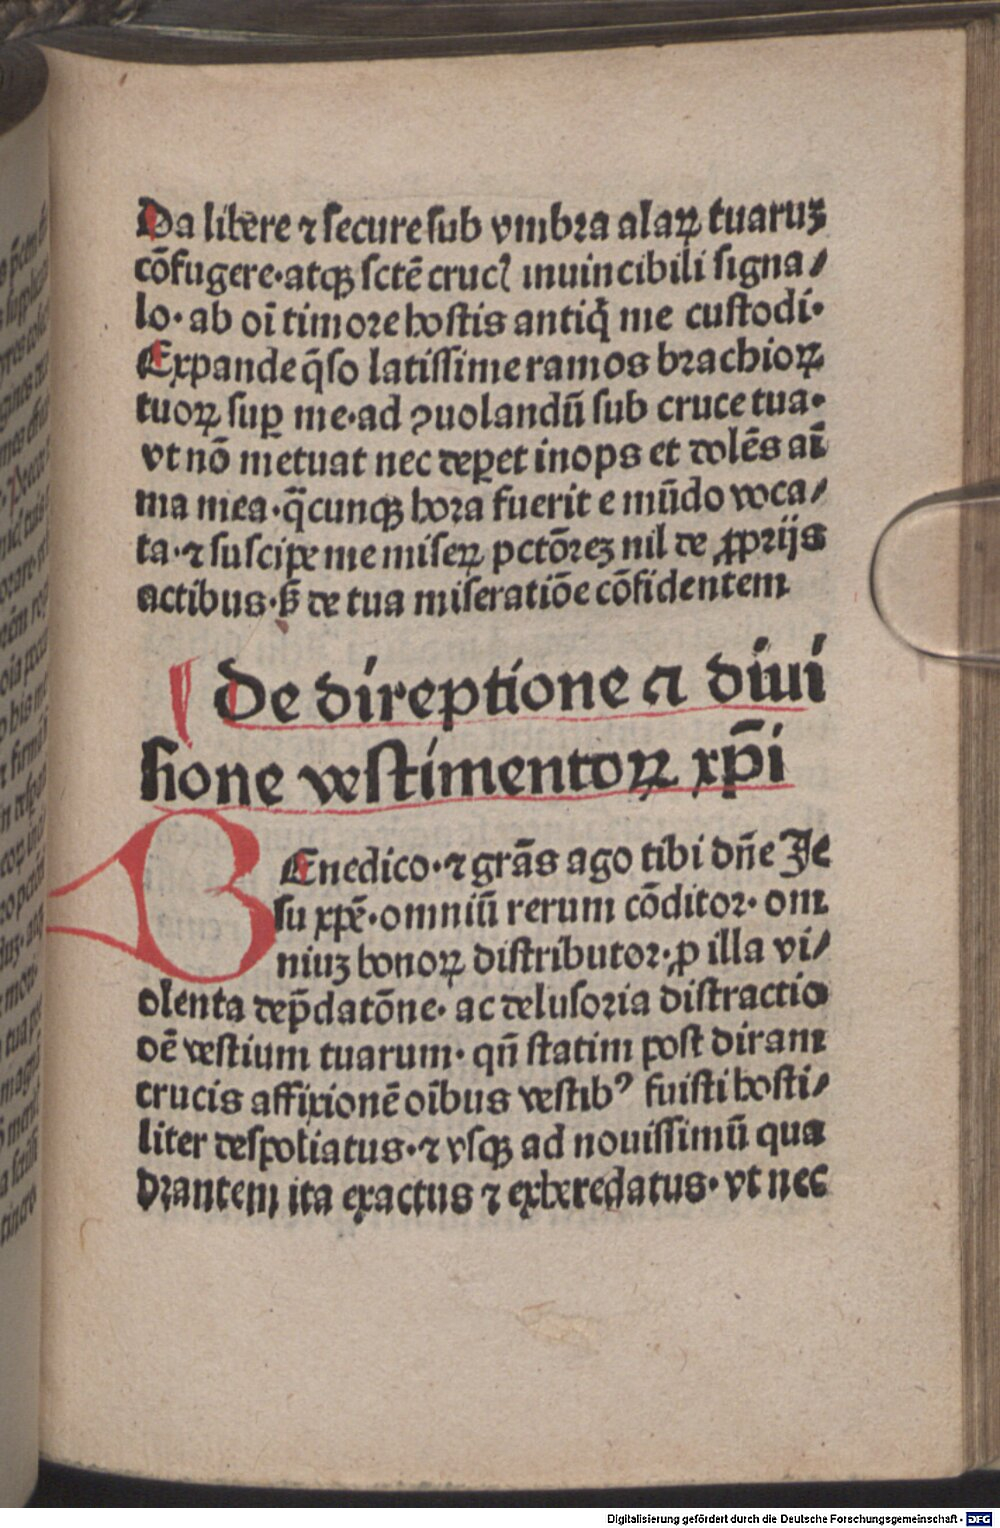 Da libere ⁊ secure sub vmbra alaꝝ tuaruꝫ
cōfugere·atqꝫ sctē cruc̉ inuincibili signa⸗
lo· ab oī timore hostis antiq̄ me custodi·
Expande q̄so latissime ramos brachioꝝ
tuoꝝ suꝑ me·ad ꝯuolandū sub cruce tua·
vt nō metuat nec deꝑet inops et dolēs aī
ma mea·q̄cunqꝫ hora fuerit e mūdo voca⸗
ta·⁊ suscipe me miseꝝ pctōreꝫ nil de ꝓprijs
actibus·ꝫ̄ de tua miseratiōe cōfidentem
De direptione et diui
sione vestimentoꝝ xp̄i
BEnedico·⁊ grās ago tibi dn̄e Je
su xp̄e·omniū rerum cōditor· om
niuꝫ bonoꝝ distributor·ꝓ illa vi⸗
olenta dep̄datōne· ac delusoria distractio
oē vestium tuarum· qn̄ statim post diram
crucis affixionē oībus vestibꝰ fuisti hosti⸗
liter despoliatus·⁊ vsqꝫ ad nouissimū qua
drantem ita exactus ⁊ exheredatus· vt nec
Digitalisierung gefördert durch die Deutsche Forschungsgemeinschaft - DFG